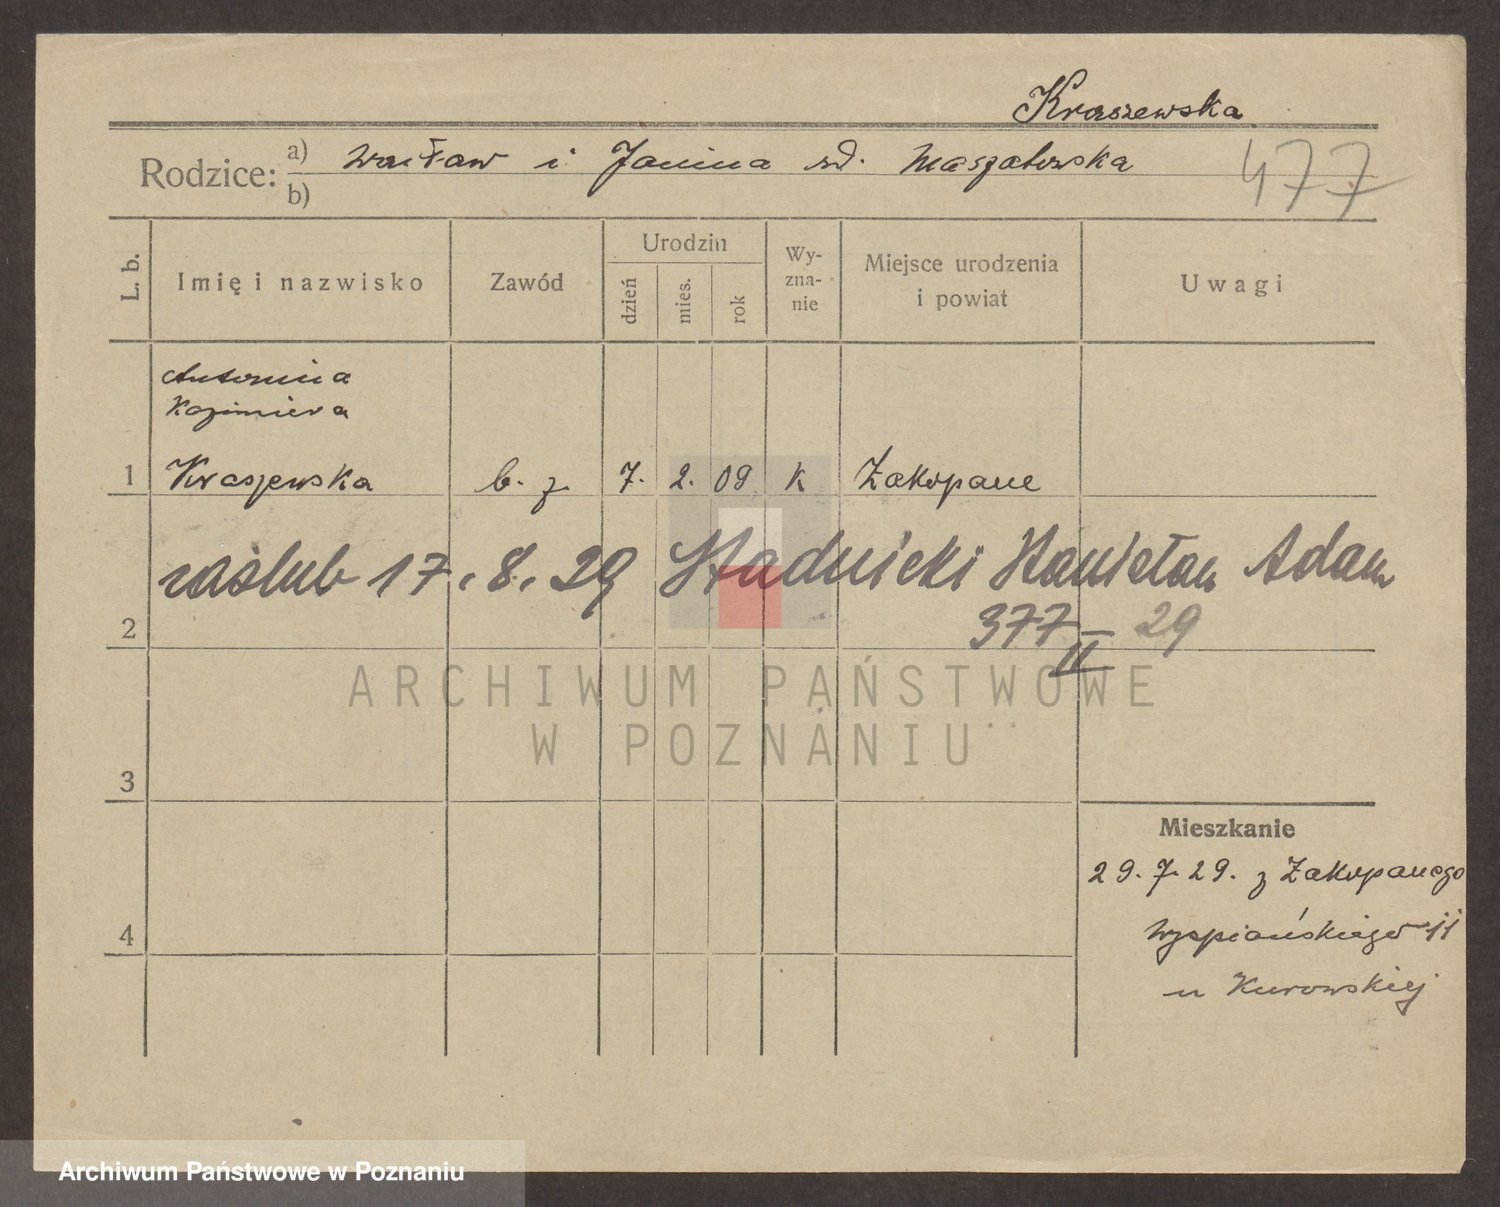 Kraszewska
Rodzice: a) Wacław i Janina zd. Maszatowska 477
b)
L. b. Imię i nazwisko Zawód Urodzin dzień mies. rok Wy-zna-nie Miejsce urodzenia i powiat Uwagi
Antonina
Kazimiera
1 Kraszewska b. z. 7. 2. 09 K Zakopane
zaślub 17. 8. 29 Stadnicki Stanisław Adam
2 377 II 29
ARCHIWUM PAŃSTWOWE
W POZNANIU
3
Mieszkanie
29. 7. 29. z Zakopanego
4 Wyspiańskiego 11
u Kurowskiej
Archiwum Państwowe w Poznaniu